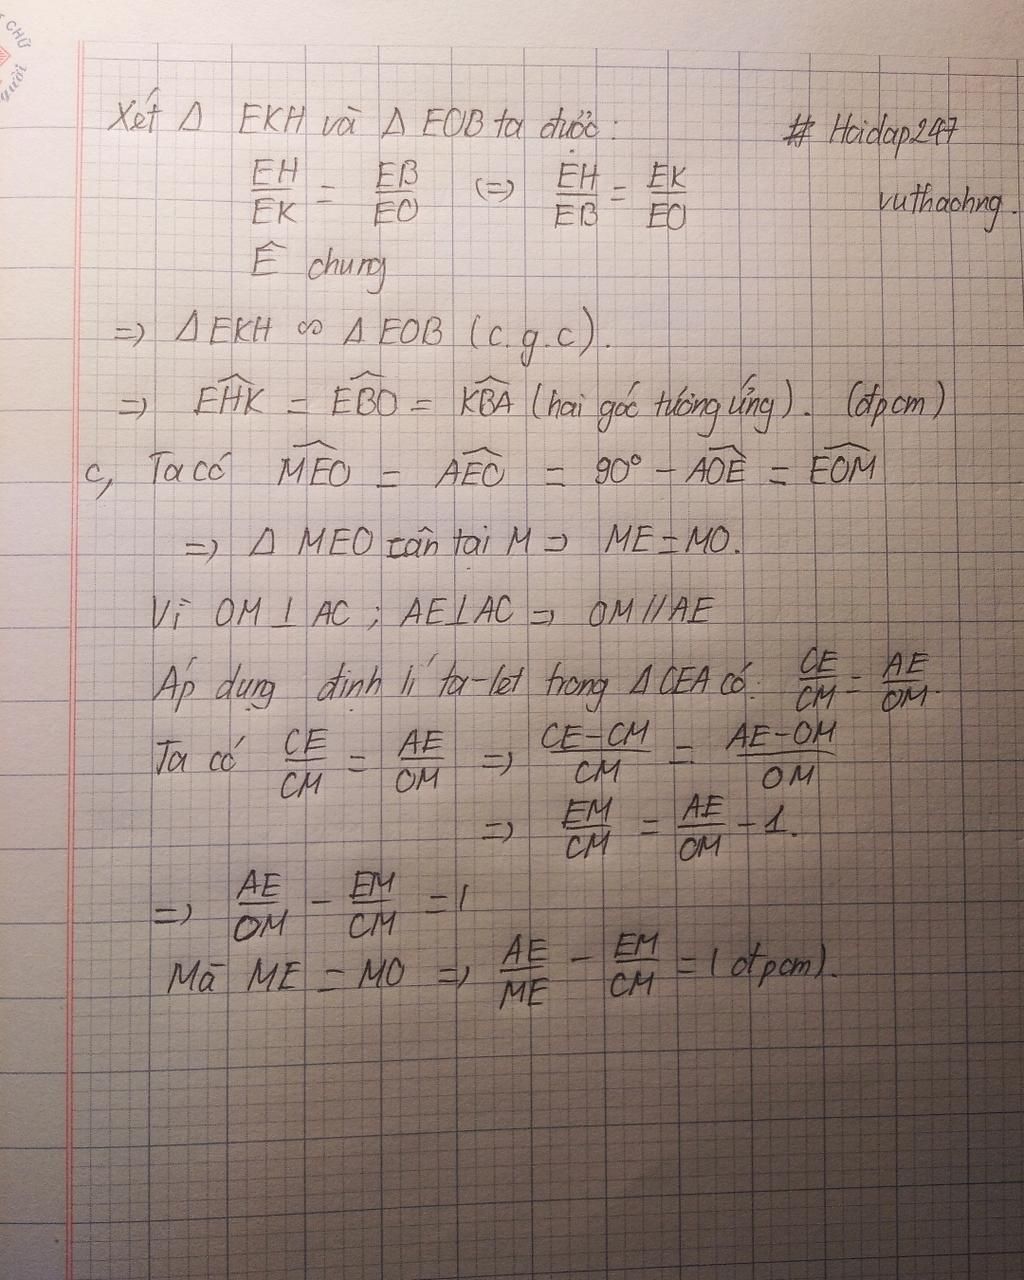 T CHỮ
gười
Xét Δ EKH và Δ EOB ta được: # Hoidap247
EH/EK = EB/EO (=) EH/EB = EK/EO vuthaohng.
Ê chung
=> Δ EKH ∽ Δ EOB (c.g.c).
=> EĤK = EB̂O = KB̂A (hai góc tương ứng). (đpcm)
c, Ta có MÊO = AÊO = 90° - AÔE = EÔM
=> Δ MEO cân tại M => ME = MO.
Vì OM ⊥ AC ; AE ⊥ AC => OM // AE
Áp dụng định lí ta-let trong Δ CEA có: CE/CM = AE/OM.
Ta có CE/CM = AE/OM => CE-CM/CM = AE-OM/OM
=> EM/CM = AE/OM - 1.
=> AE/OM - EM/CM = 1
Mà ME = MO => AE/ME - EM/CM = 1 đpcm).